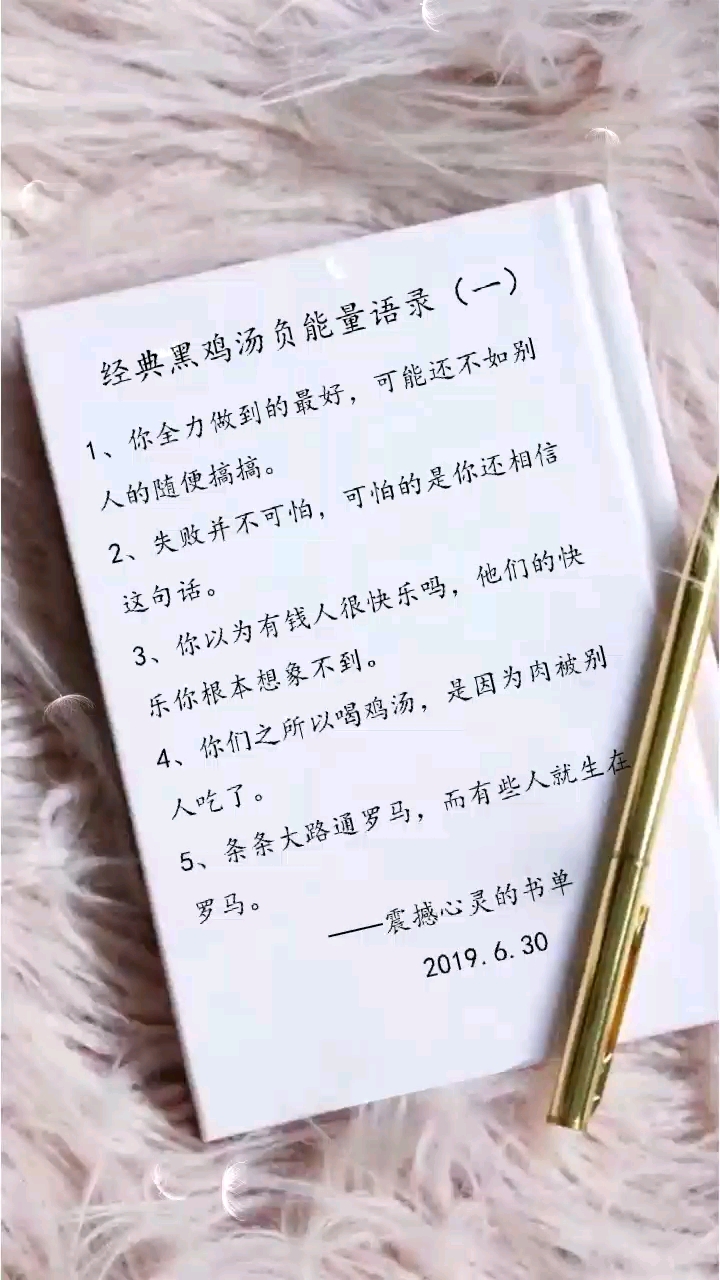 经典黑鸡汤负能量语录（一）
1、你全力做到的最好，可能还不如别
人的随便搞搞。
2、失败并不可怕，可怕的是你还相信
这句话。
3、你以为有钱人很快乐吗，他们的快
乐你根本想象不到。
4、你们之所以喝鸡汤，是因为肉被别
人吃了。
5、条条大路通罗马，而有些人就生在
罗马。
——震撼心灵的书单
2019.6.30